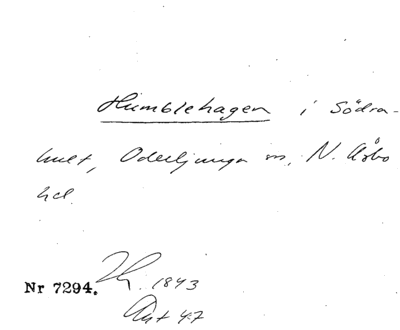 Humblehagen i Södra-
hult, Oderljunga sn, N. Åsbo
hd.
Nr 7294. 1843
Akt 47